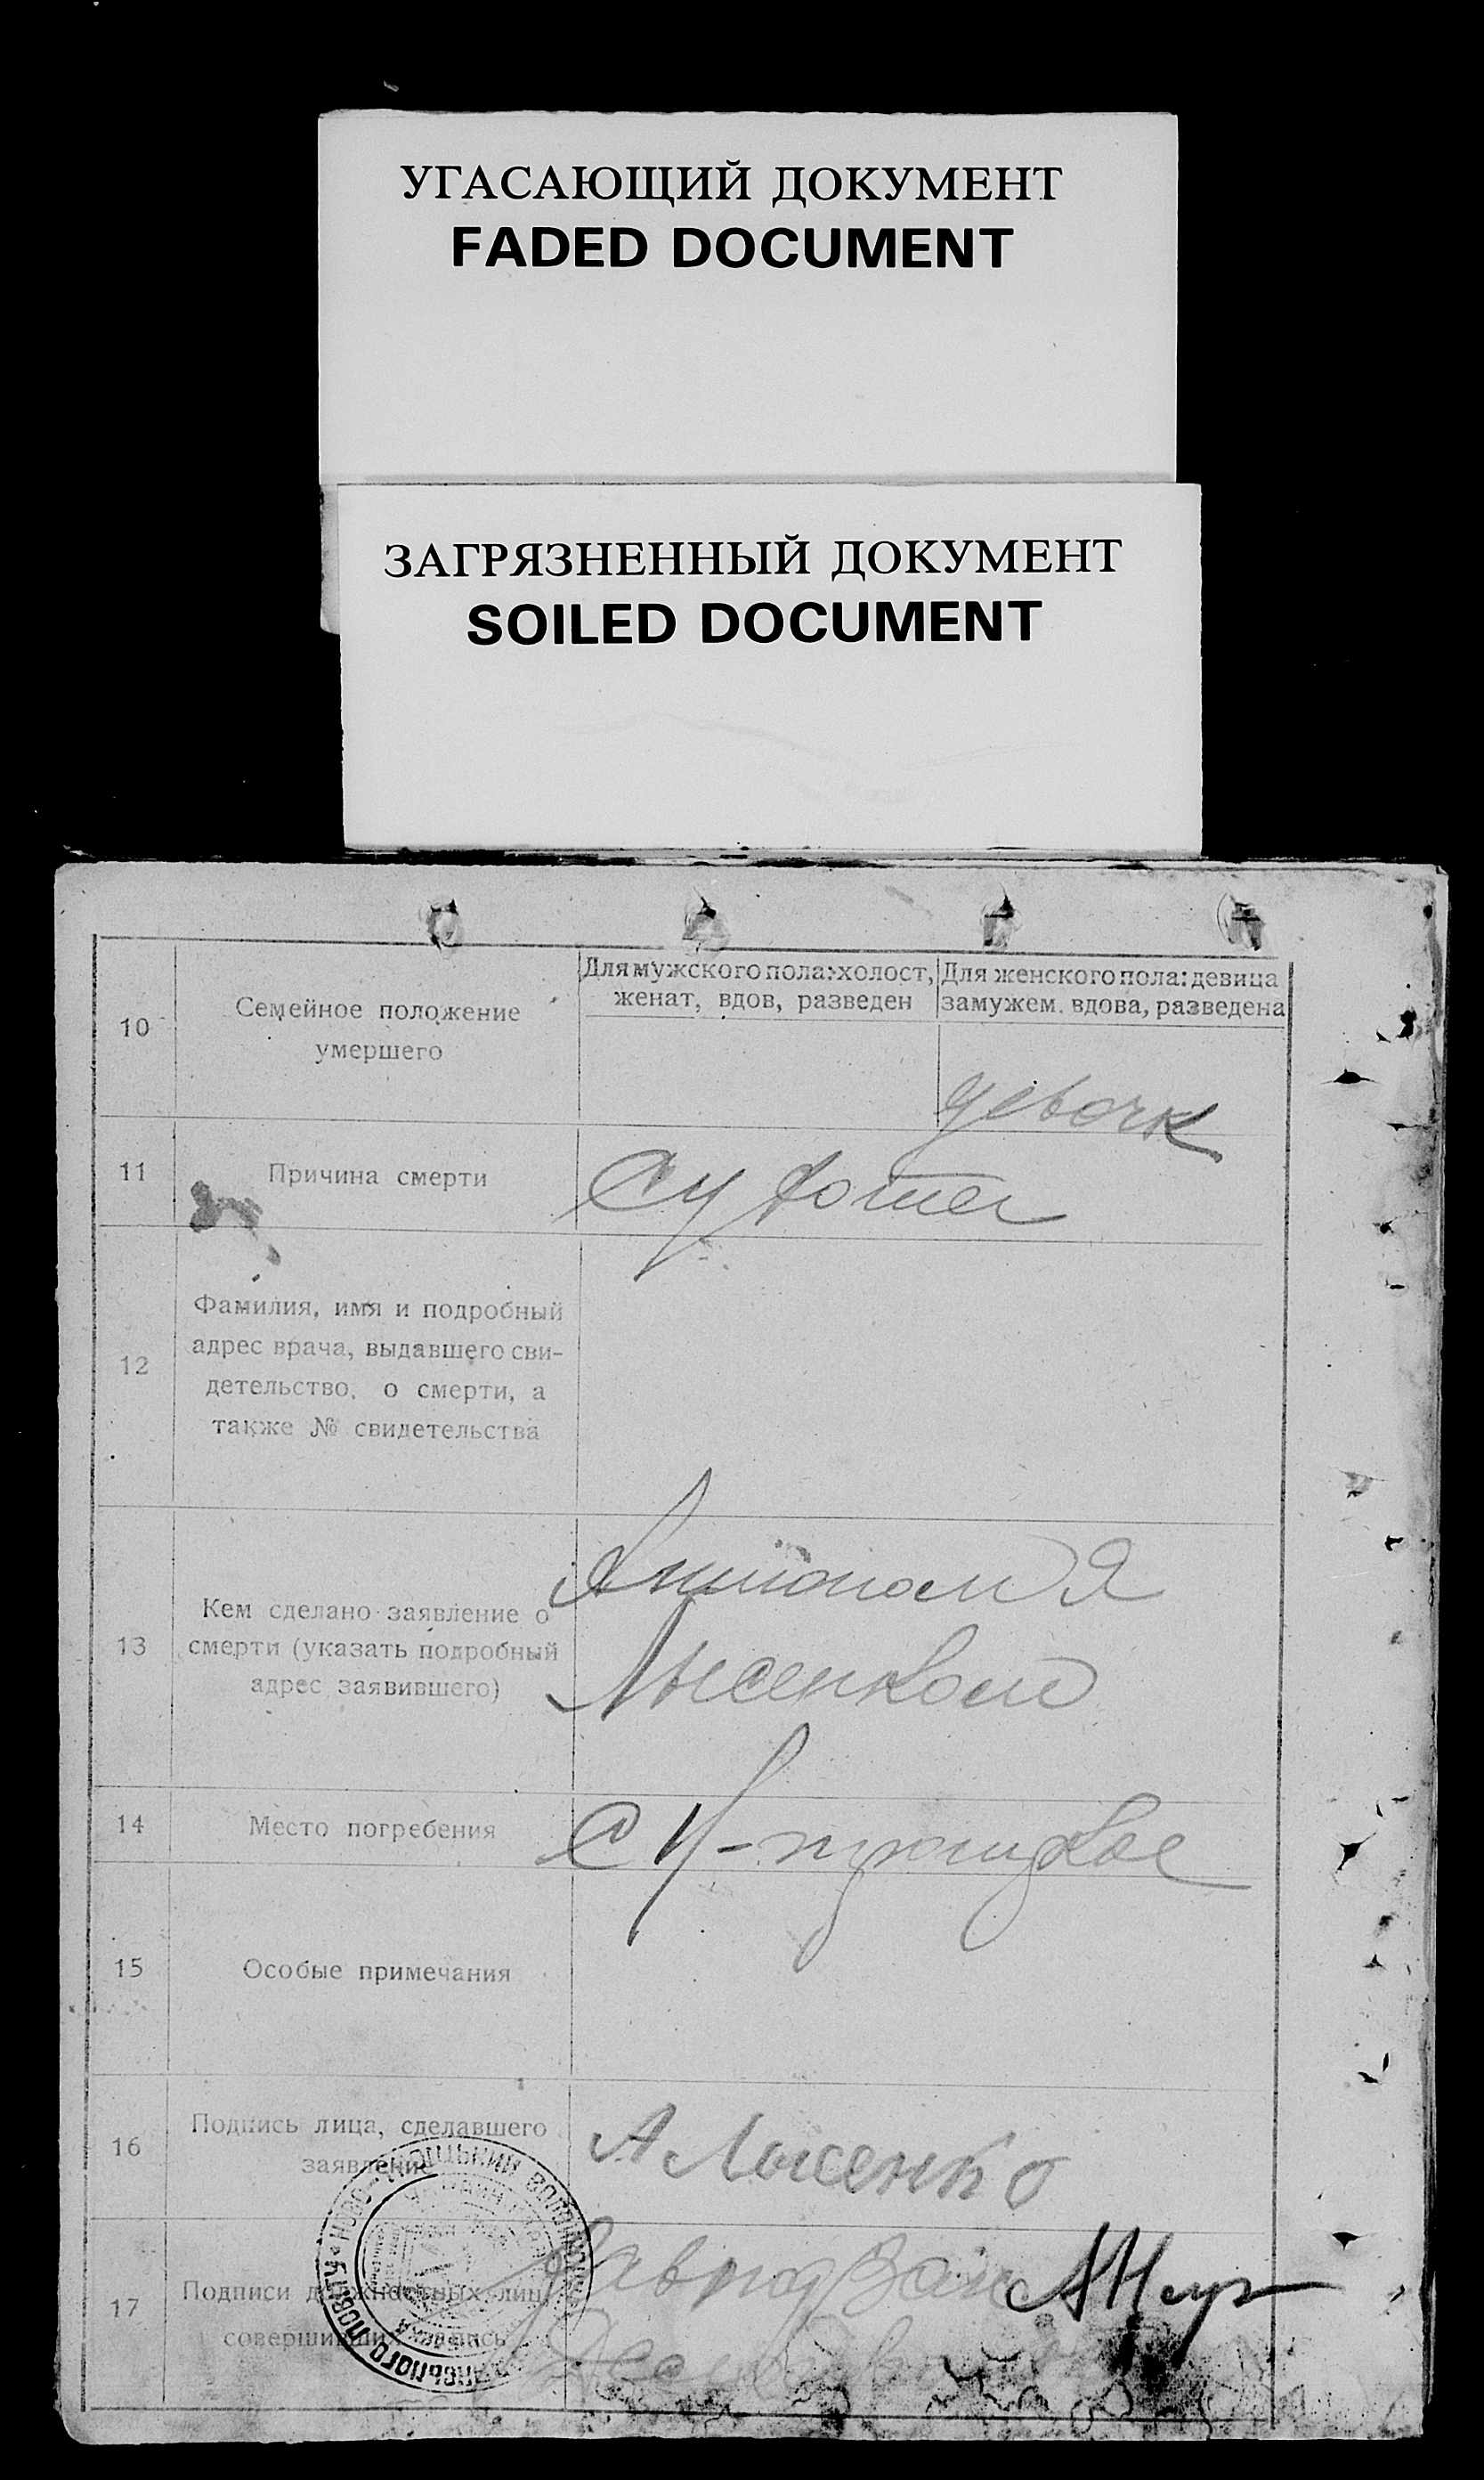 УГАСАЮЩИЙ ДОКУМЕНТ
FADED DOCUMENT
ЗАГРЯЗНЕННЫЙ ДОКУМЕНТ
SOILED DOCUMENT
10
Семейное положение
умершего
Для мужского пола: холост,
женат, вдов, разведен
Для женского пола: девица
замужем, вдова, разведена
девочк
11
Причина смерти
12
Фамилия, имя и подробный
адрес врача, выдавшего сви-
детельство, о смерти, а
также № свидетельства
13
Кем сделано заявление о
смерти (указать подробный
адрес заявившего)
Лысенком
14
Место погребения
15
Особые примечания
16
Подпись лица, сделавшего
заявление
А Лысенко
17
Подписи должностных лиц,
совершивших запись